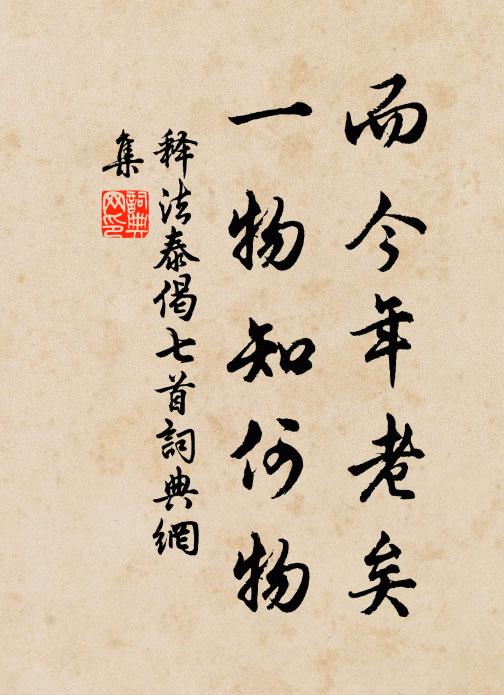 而今年老矣
一物知何物
释法泰偈七首詞典網
集
詞典
网印